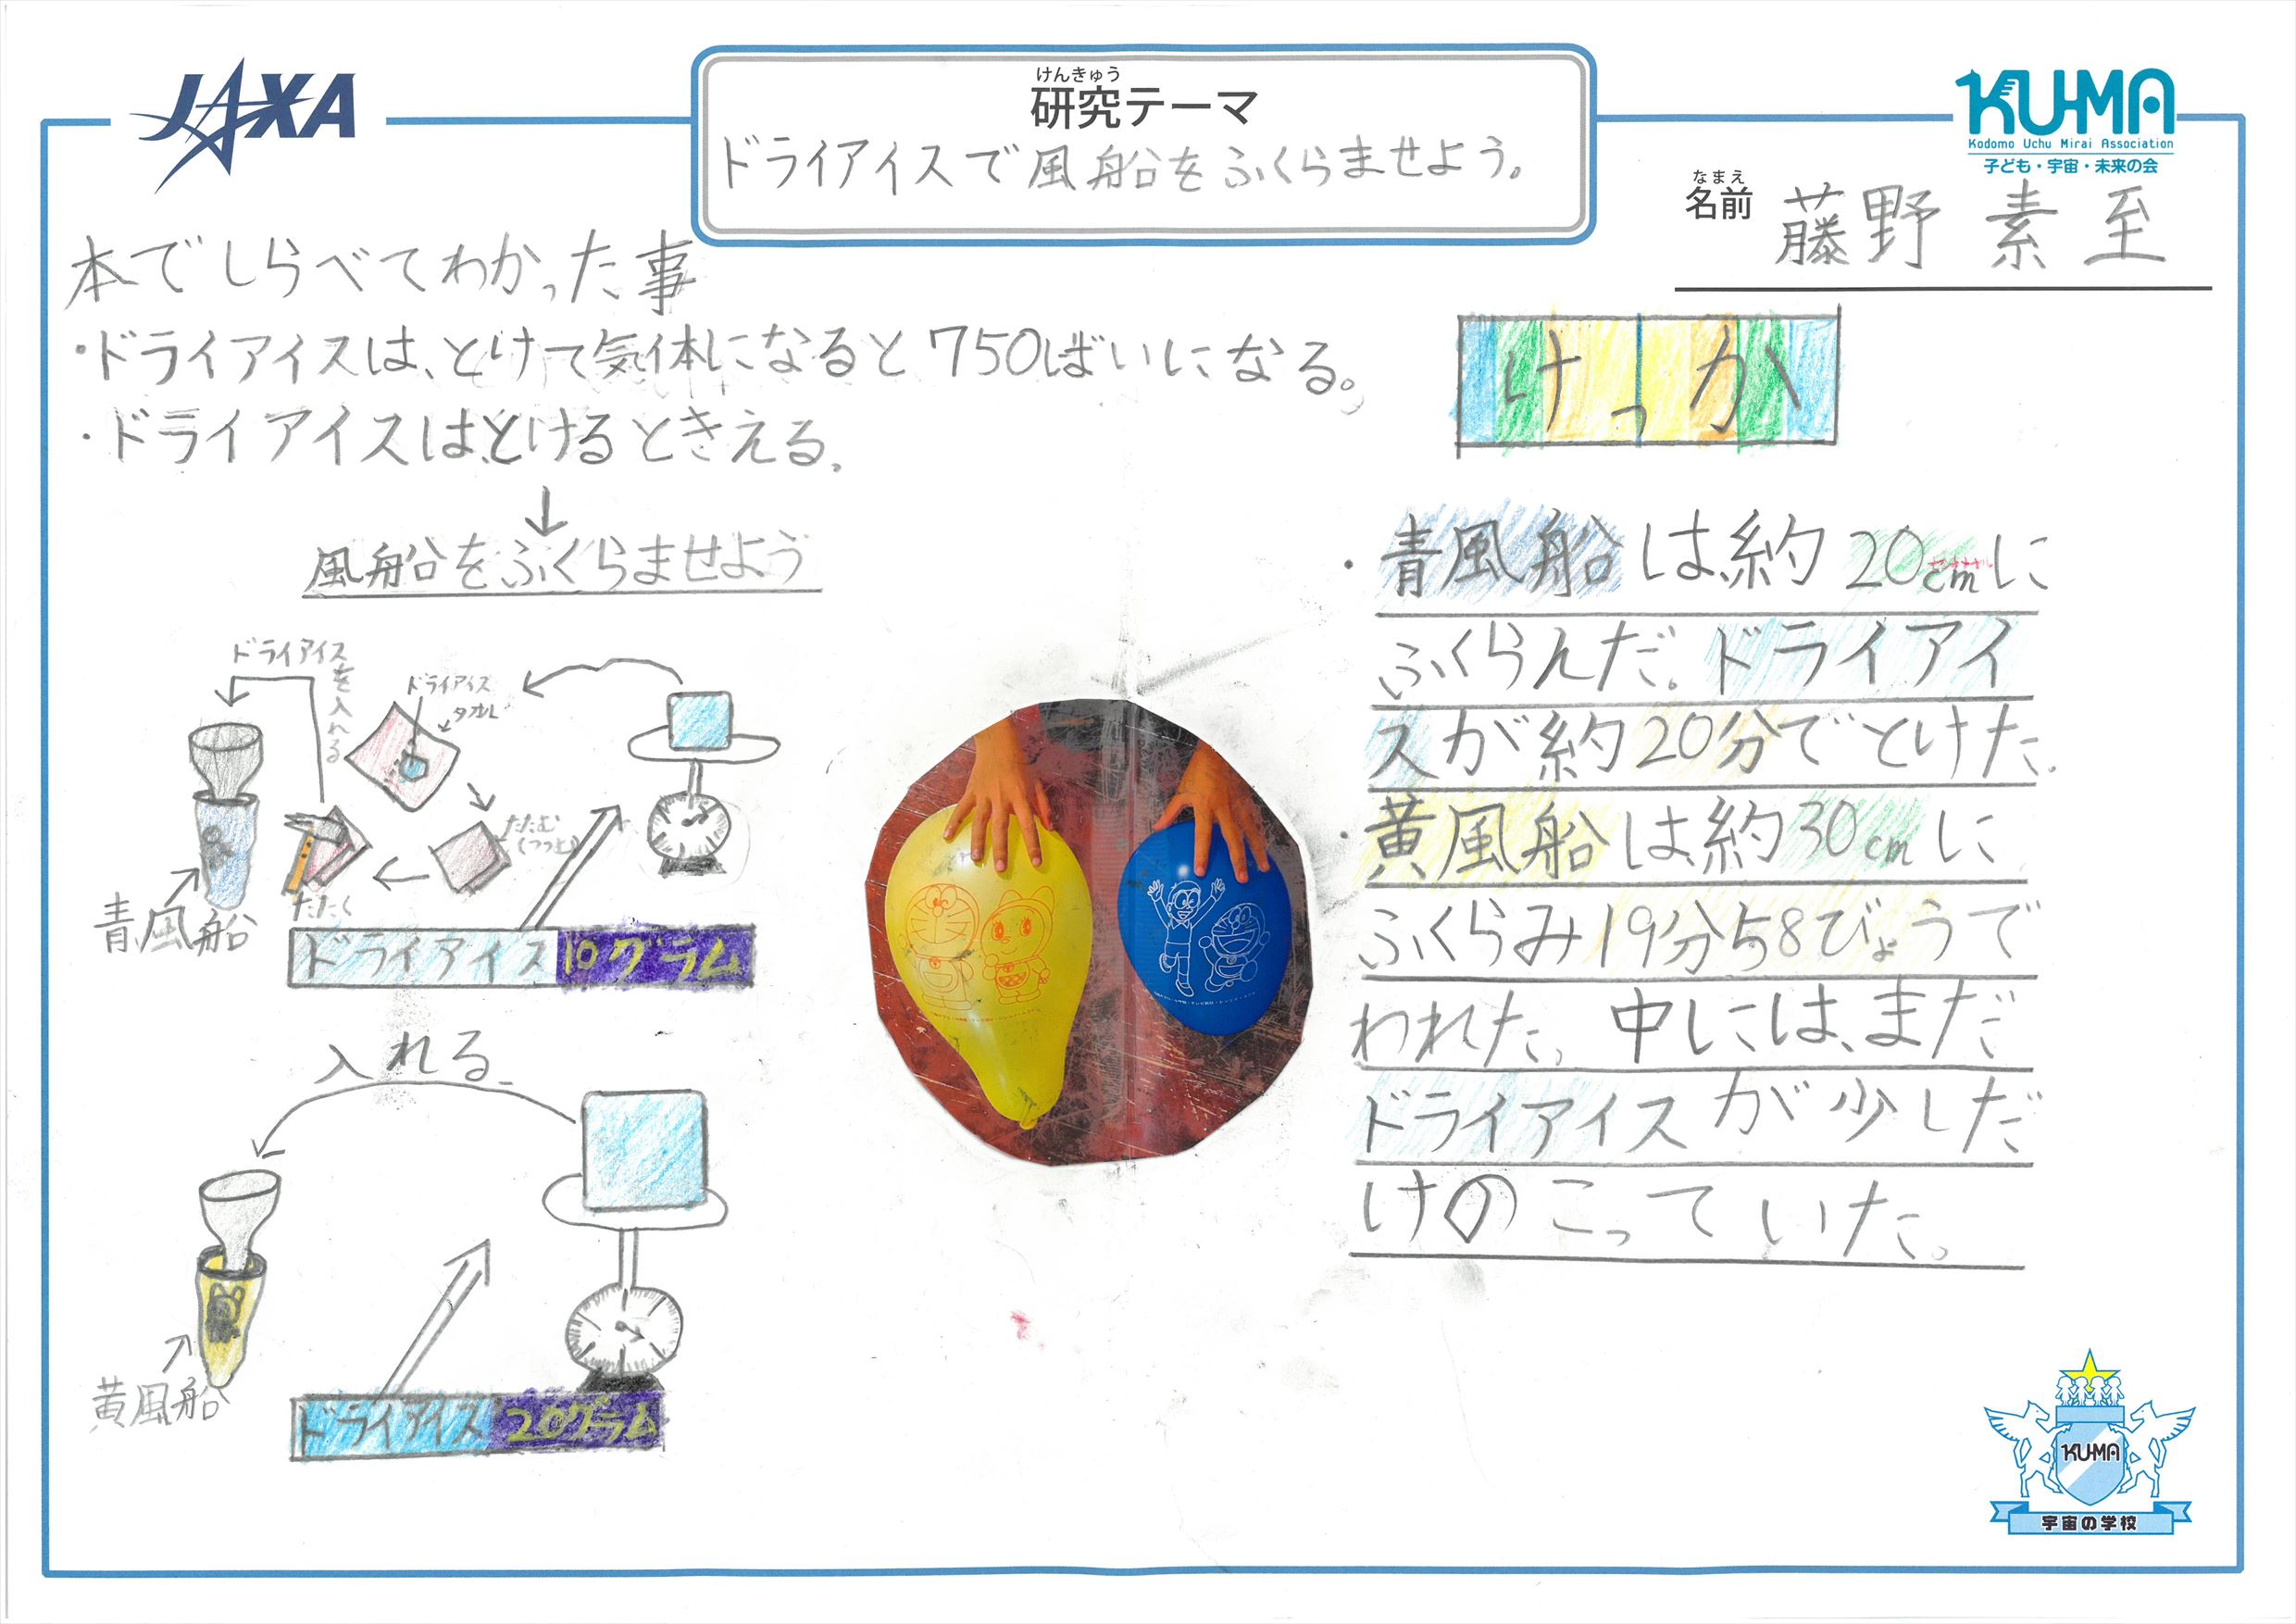 JAXA
けんきゅう
研究テーマ
ドライアイスで風船をふくらませよう。
KU-MA
Kodomo Uchu Mirai Association
子ども・宇宙・未来の会
なまえ
名前
藤野 素至
本でしらべてわかった事
・ドライアイスは、とけて気体になると750ばいになる。
・ドライアイスは、とけるときえる。
↓
風船をふくらませよう
ドライアイス
を入れる
ドライアイス
タオル
たたむ
(つつむ)
たたく
青風船
ドライアイス10グラム
入れる。
黄風船
ドライアイス20グラム
けっか
・青風船は、約20cmに
ふくらんだ。ドライアイ
スが約20分でとけた。
・黄風船は、約30cmに
ふくらみ19分58びょうで
われた。中には、まだ
ドライアイスが少しだ
けのこっていた。
KU-MA
宇宙の学校